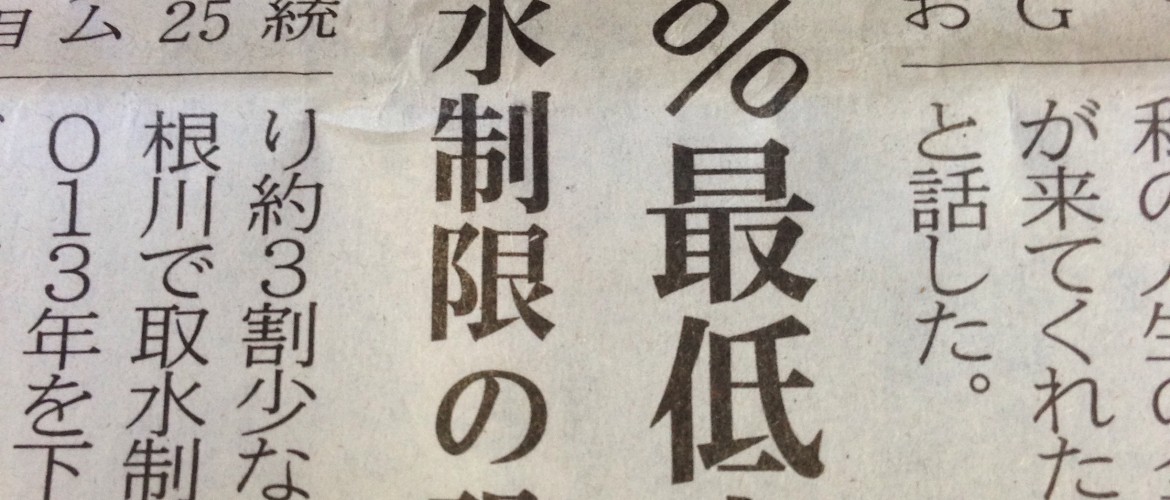 お G
が来てくれた
と話した。
%最低
水制限の
ョム 25 統
り約3割少な
根川で取水制
013年を下